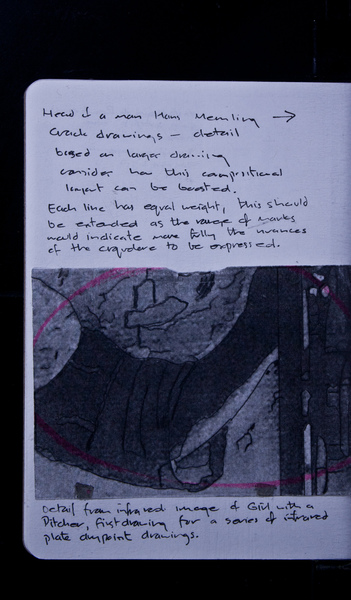 Head of a man Hans Memling →
Crack drawings – detail
based on larger drawing
consider how this compositional
layout can be boosted.
Each line has equal weight, this should
be extended as the range of marks
would indicate more fully the nuances
of the craquelure to be expressed.
Detail from infrared image of Girl with a
Pitcher, first drawing for a series of infrared
plate drypoint drawings.